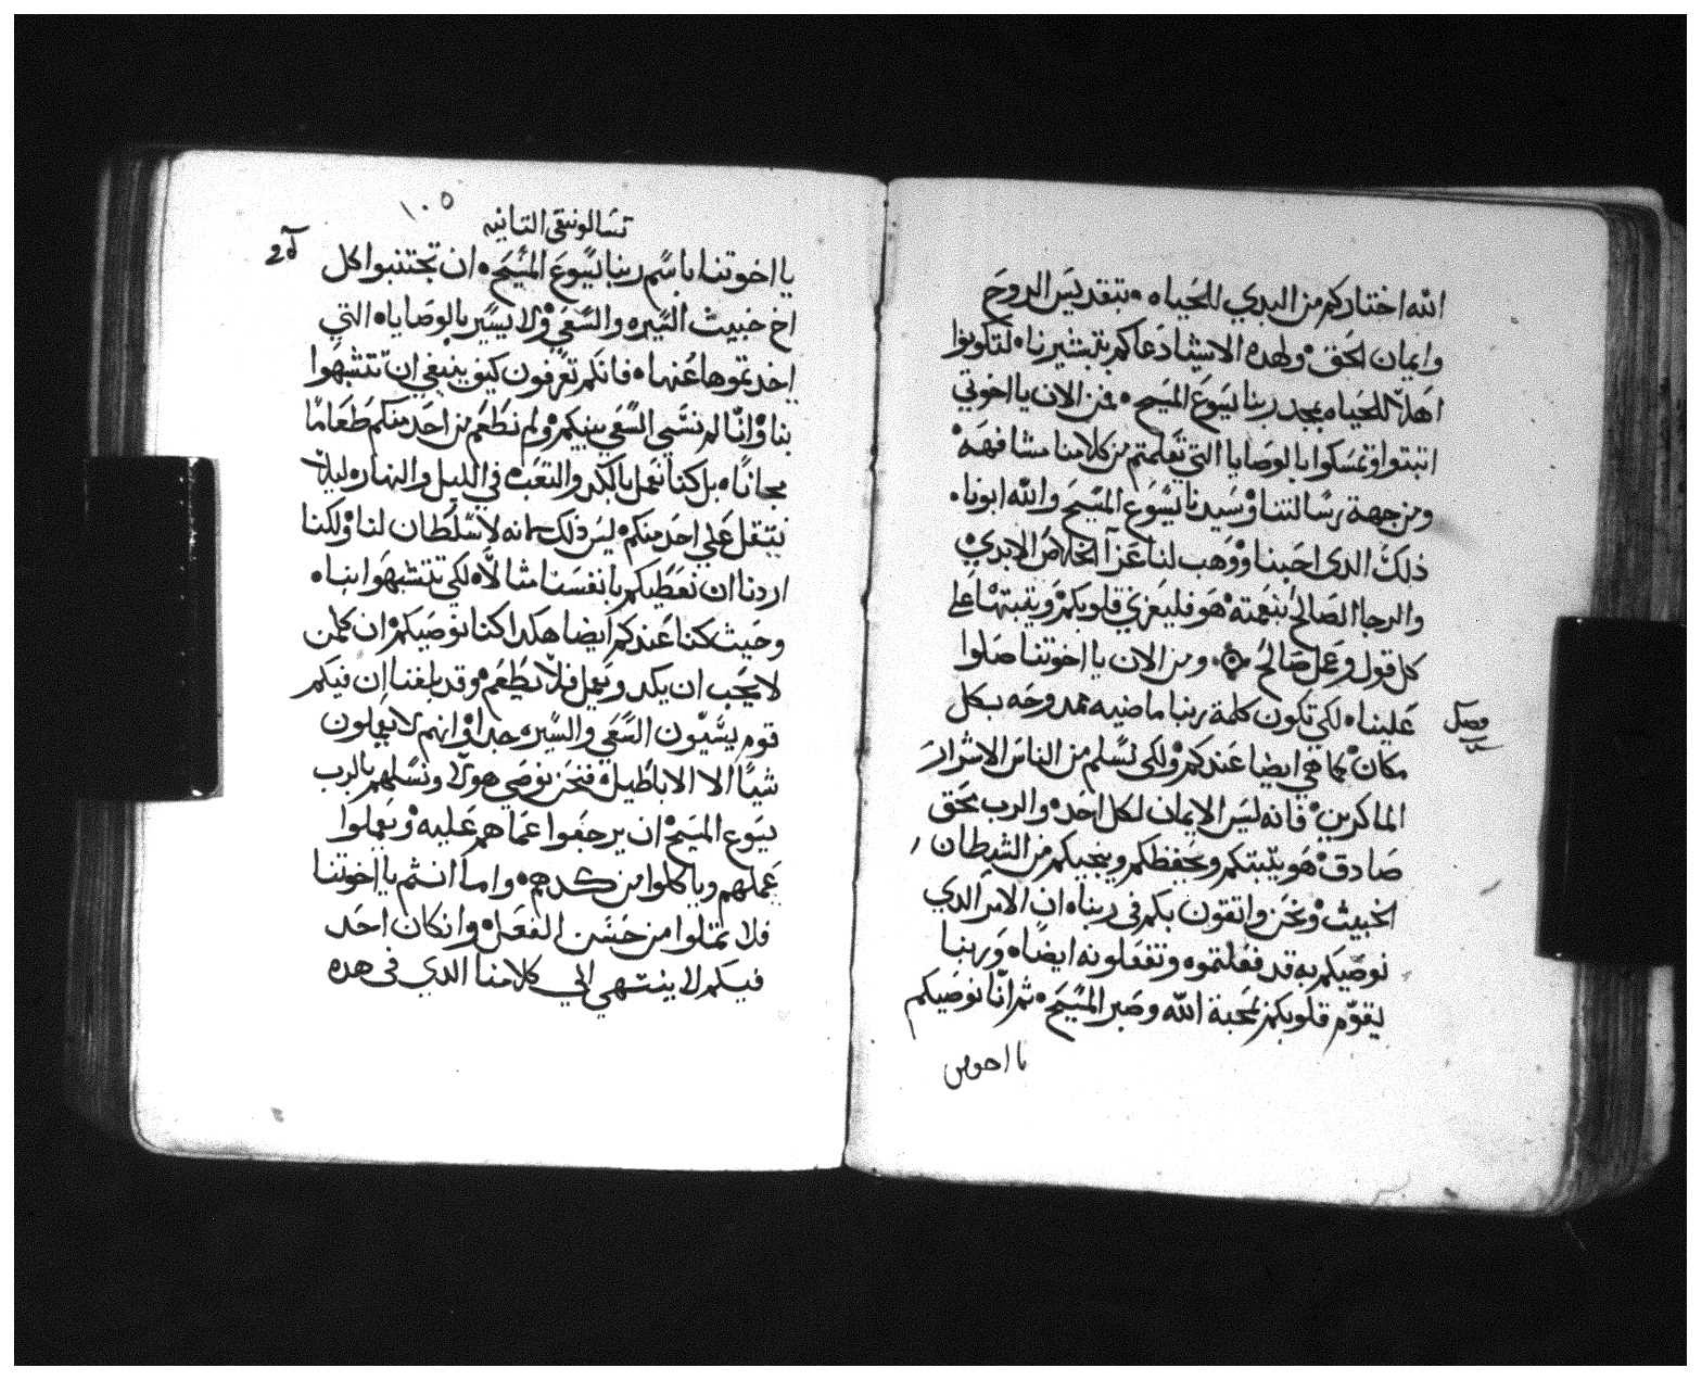 الله اختاركم من البدي للحياه • بتقديس الروح
وايمان الحق • ولهده الاشيا دعاكم بتبشيرنا • لتكونوا
اهلا للحياه بمجد ربنا يسوع المسيح • فمن الان يا اخوتي
اتبتوا وتمسكوا بالوصايا التي تعلمتم من كلامنا مشافهة •
ومن جهة رسالتنا • وسيدنا يسوع المسيح والله ابونا •
ذلك الدي احبنا • ووهب لنا عزا الخلاص الابدي •
والرجا الصالح بنعمته • هو فليعزي قلوبكم • ويتبتها علي
كل قول وعمل صالح • ومن الان يا اخوتنا صلوا
فصل
علينا • لكي تكون كلمة ربنا ماضيه ممدوحه بكل
مكان • كما هي ايضا عندكم • ولكي نسلم من الناس الاشرار
الماكرين • فانه ليس الايمان لكل احد • والرب بحق
صادق • هو يتبتكم ويحفظكم وينجيكم من الشيطان
الخبيث • ونحن واتقون بكم في ربنا • ان الامر الدي
نوصيكم به قد فعلتموه وتفعلونه ايضا • وربنا
يقوم قلوبكم لمحبة الله وصبر المسيح • ثم انا نوصيكم
يا اخوتنا
١٠٥
تسالونيقي التانيه
يا اخوتنا باسم ربنا يسوع المسيح • ان تجتنبوا كل
اخ خبيث السيره والسعي • ولا يسير بالوصايا • التي
اخدتموها عنا • فانكم تعرفون كيف ينبغي ان تتشبهوا
بنا • وانا لم نسي السعي بينكم • ولم نطعم من احد منكم طعاما
مجانا • بل كنا نعمل بالكد والتعب • في الليل والنهار • ليلا
نتقل علي احد منكم • ليس ذلك لانه لا سلطان لنا • ولكنا
اردنا ان نعطيكم بانفسنا مثالا • لكي تتشبهوا بنا •
وحيث كنا عندكم ايضا هكدا كنا نوصيكم • ان كلمن
لا يحب ان يكد ويعمل فلا يطعم • وقد بلغنا ان فيكم
قوم يسيون السعي والسيره جدا • وانهم لا يعملون
شيا الا الاباطيل • فنحن نوصي هولا ونسلهم بالرب
يسوع المسيح • ان يرجعوا عما هم عليه • ويعملوا
عملهم وياكلوا من كدهم • واما انتم يا اخوتنا
فلا تملوا من حسن الفعل • وان كان احد
فيكم لا ينتهي الي كلامنا الدي في هده